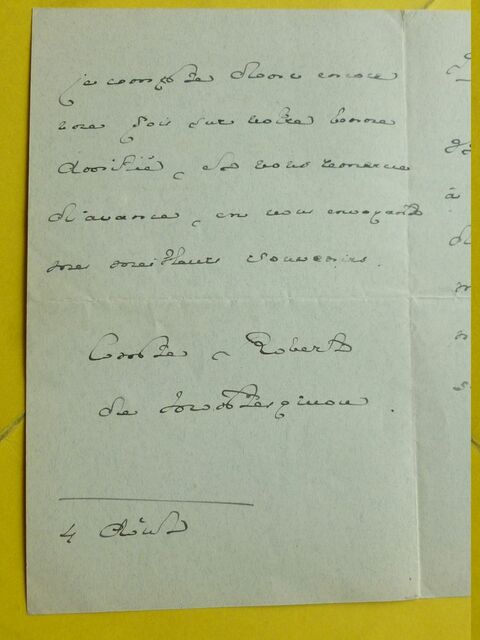 je compte donc encore
une fois sur votre bonne
amitié, et vous remercie
d'avance, en vous envoyant
mes meilleurs souvenirs.
Comte Robert
de Montesquiou.
4 Août